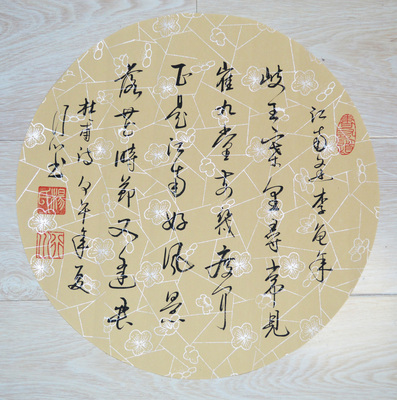 江南逢李龟年
岐王宅里寻常见
崔九堂前几度闻
正是江南好风景
落花时节又逢君
杜甫诗 甲午年夏